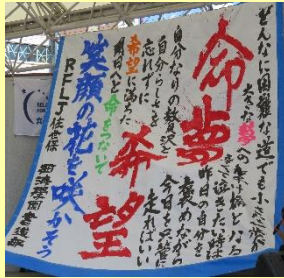 どんなに困難な道でも小さな歩が
大きな夢への架け橋となる
泣きたい時は
昨日の自分を
褒めながら
今日も只管に
走ればいい
命夢
希望
自分なりの贅沢と
自分らしさを
忘れずに
希望に満ちた
明日へと命をつないで
笑顔の花を咲かそう
RFLJ佐世保